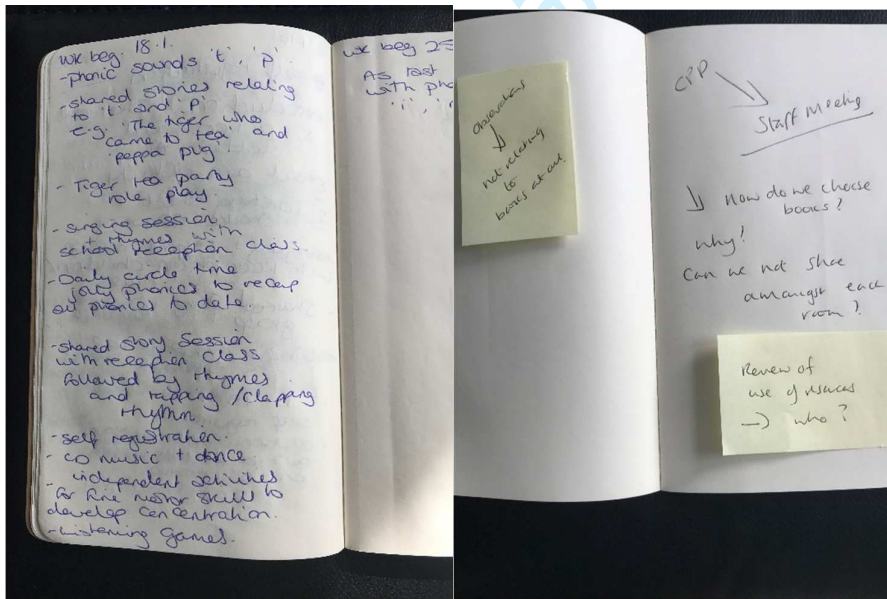 wk beg. 18.1.
- phonic sounds 't', 'p'.
- shared stories relating
to 't' and 'p'
e.g. 'The tiger who
came to tea' and
'peppa pig'.
- Tiger tea party
role play.
- singing session
+ rhymes with
school reception class.
- Daily circle time
jolly phonics to recap
all phonics to date.
- shared story session
with reception class
followed by rhymes
and tapping / clapping
rhythm.
- self registration.
- CD music + dance
- independent activities
for fine motor skill to
develop concentration.
- Listening games.
wk beg 25
As last
with pho
'i',
Observations
↓
not relating
to
books at all!
CPP
Staff Meeting
↓ How do we choose
books?
Why?
Can we not share
amongst each
room?
Review of
use of resources
→ who?